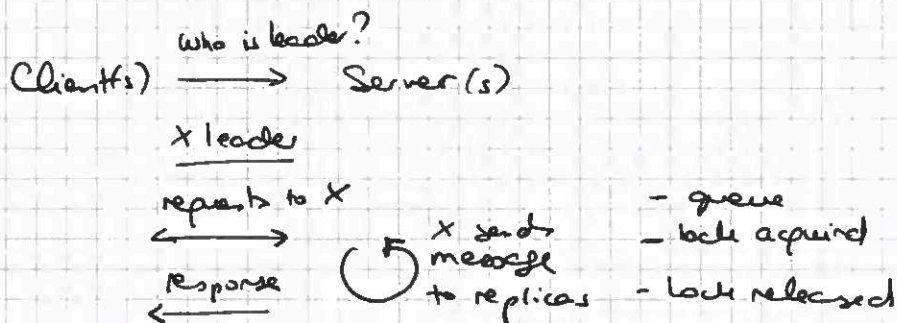 who is leader?
Client(s) Server(s)
X leader
requests to X
X sends
message
to replicas
response
- queue
- lock acquired
- lock released